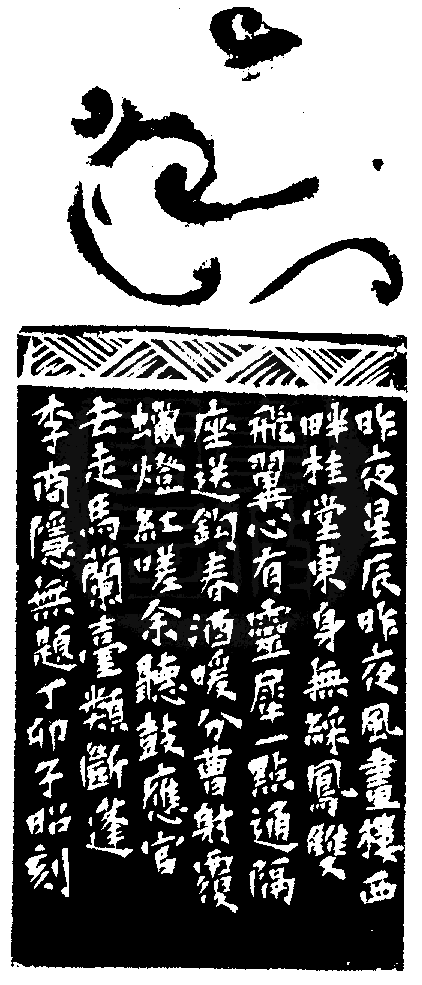 心
昨夜星辰昨夜風畫樓西
畔桂堂東身無綵鳳雙
飛翼心有靈犀一點通隔
座送鉤春酒暖分曹射覆
蠟燈紅嗟余聽鼓應官
去走馬蘭臺類斷蓬
李商隱無題丁卯子昭刻